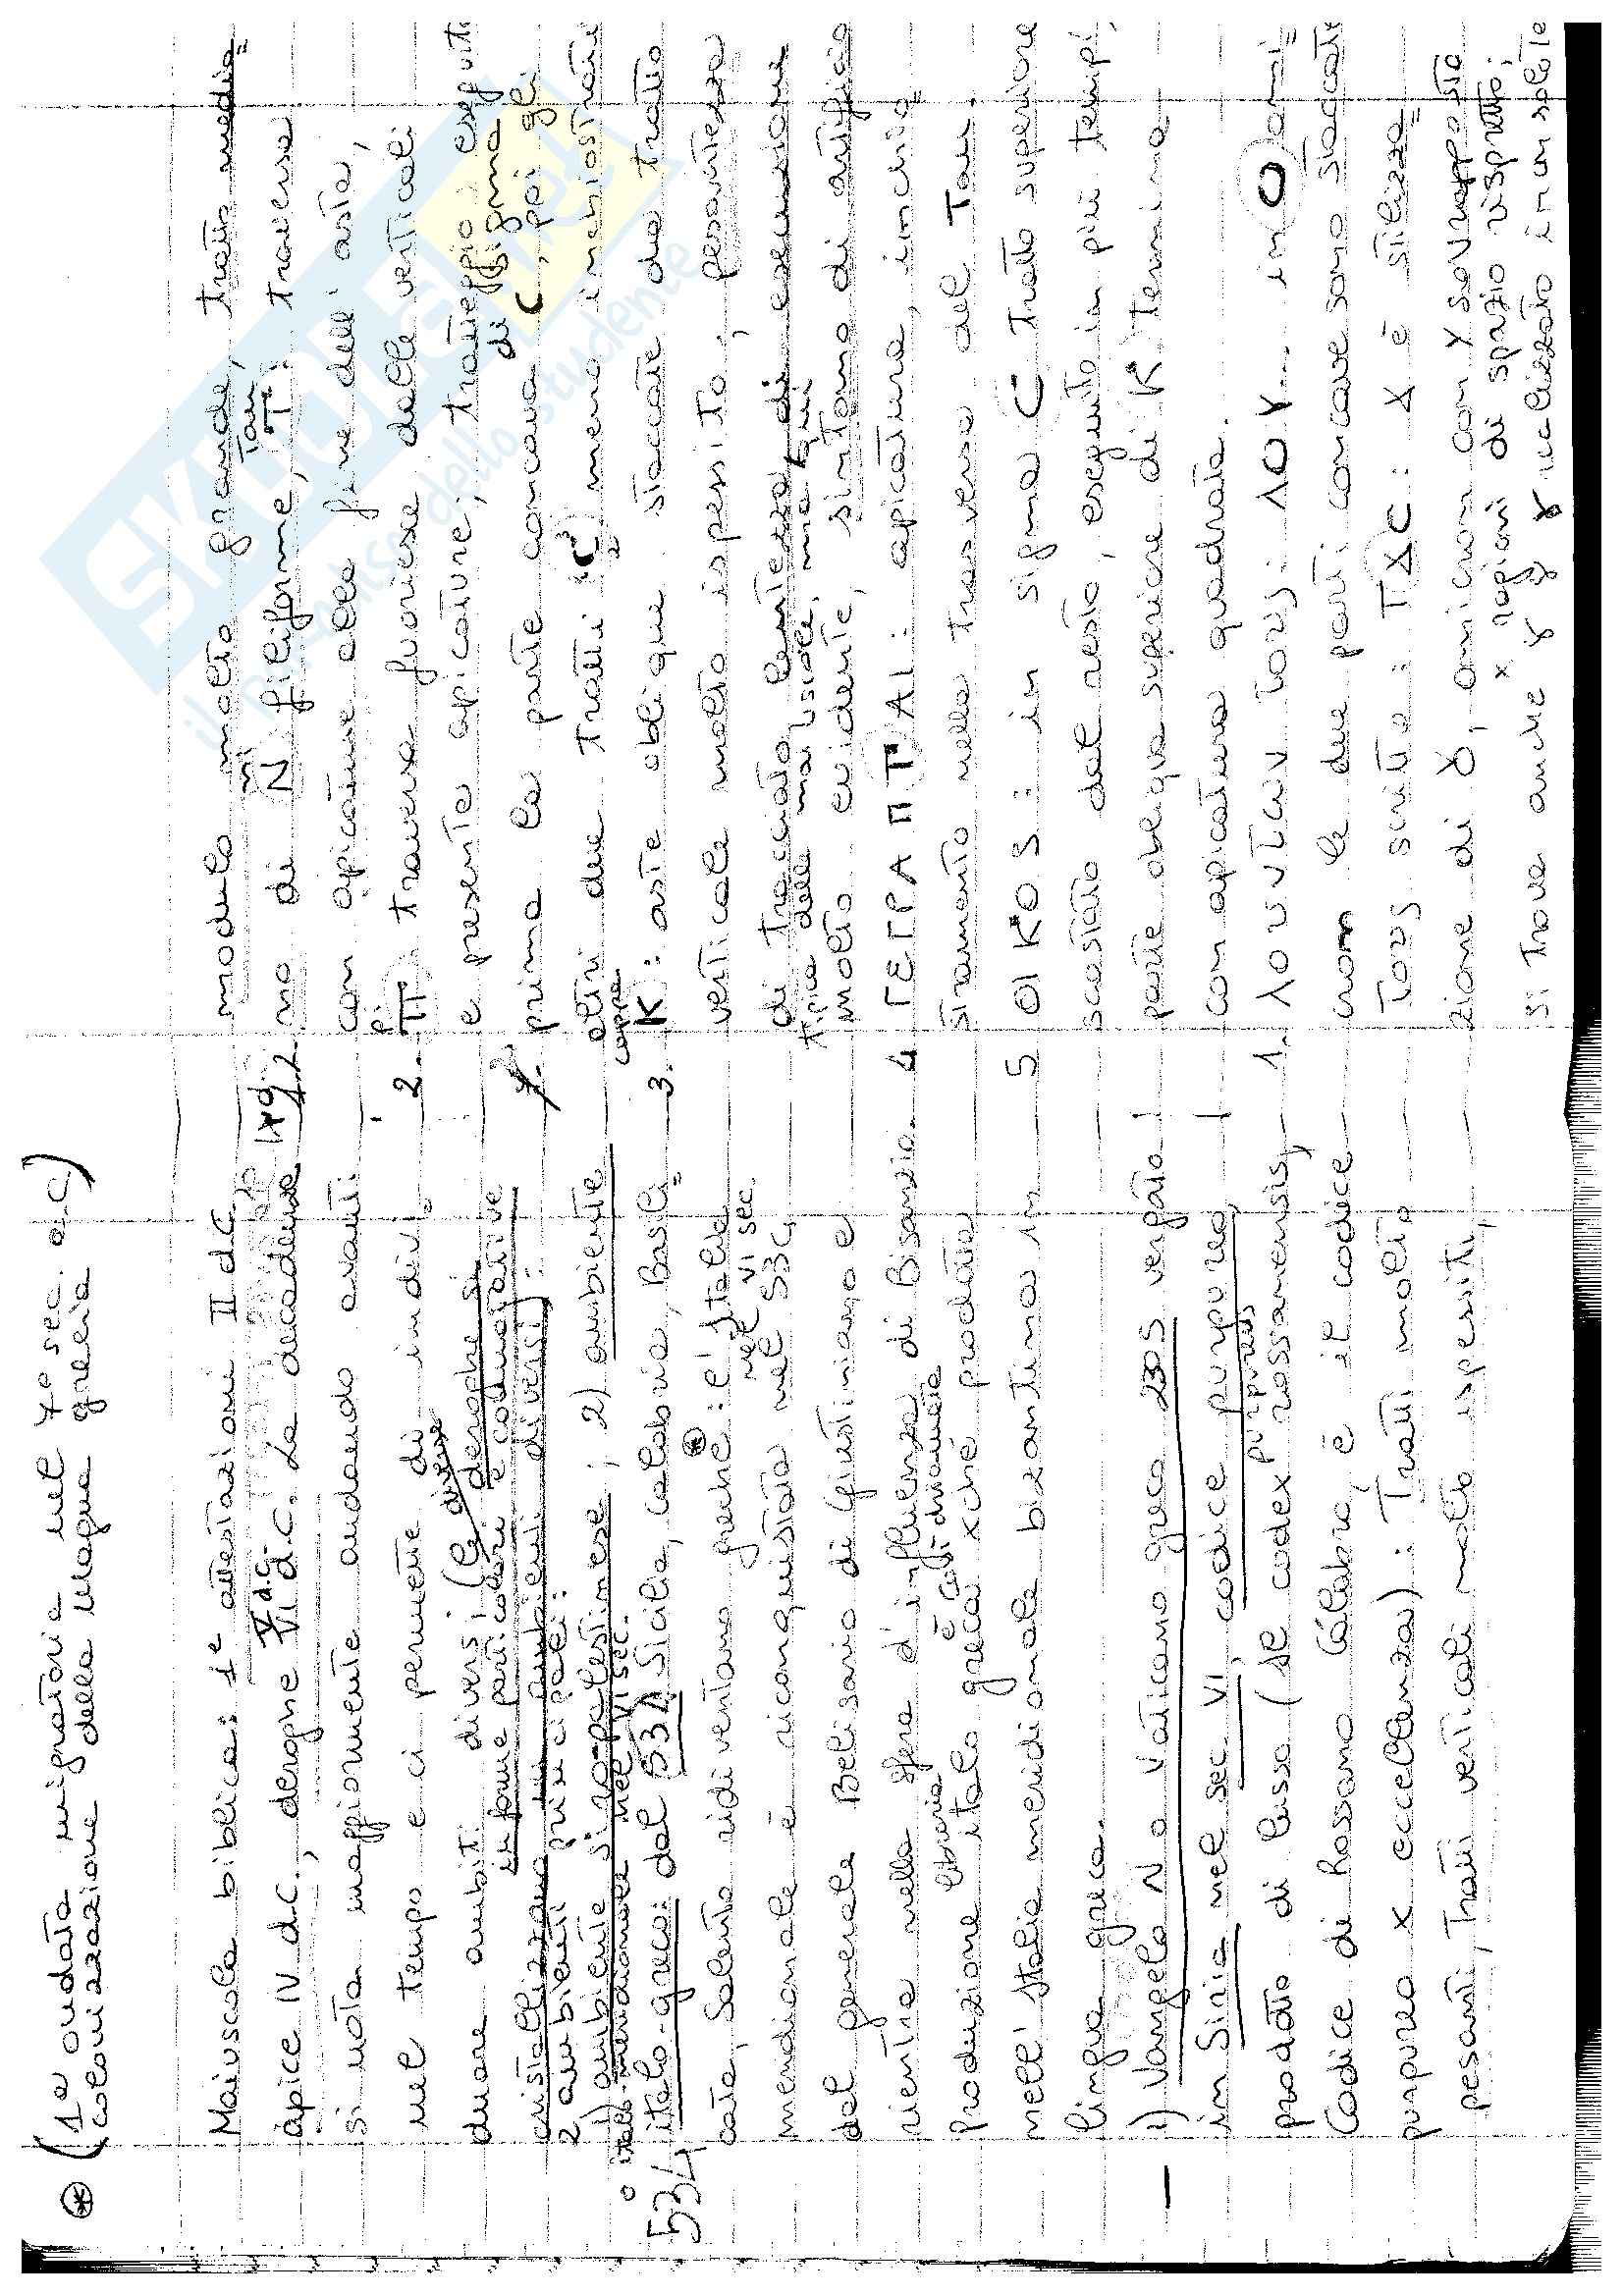 ⊛ (1ª ondata migratoria nel 7º sec. a.C)
colonizzazione della Magna grecia
Maiuscola biblica: 1ª attestazioni II d.C.
apice IV d.C., V d.C. deroghe VI d.C. La decadenza
si nota maggiormente andando avanti
nel tempo e ci permette di indivi
duare ambiti diversi (le diverse deroghe si
in forme particolari e connotative
cristallizzano in ambienti diversi):
2 ambienti principali:
1) ambiente siro-palestinese; 2) ambiente
italo-meridionale nel VI sec.
italo-greco: dal 534 Sicilia, Calabria, Basili
534
cata, Salento ridiventano greche ⊛: l'Italia
nel VI sec.
meridionale è riconquistata nel 53
del generale Belisario di Giustiniano e
rientra nella sfera d'influenza di Bisanzio.
libraria è così chiamata
Produzione italo greca xché prodotta
nell'Italia meridionale bizantina in
lingua greca.
1) Vangelo N o Vaticano greco 2305 vergato
in Siria nel sec VI, codice purpureo,
purpureus
prodotto di lusso (il codex rossanensis,
Codice di Rossano Calabro, è il codice
purpureo x eccellenza): Tratti molto
pesanti, Tratti verticali molto ispessiti,
modulo molto grande, tratto media
ni Tau
no di N filiforme, T traversa
con apicature alla fine dell'asta,
pi
2. π traversa fuoriesce dalle verticali
e presenta apicature; tratteggio eseguito
di sigma
di C, poi gli
prima la parte concava
altri due tratti: C meno inchiostrati
cappa
3. K: aste oblique staccate da tratto
verticale molto ispessito, pesantezza
di tracciato, lentezza di esecuzione
tipica delle maiuscole, ma qui
molto evidente, sintomo di artificio
4 ΤΕΤΡΑΠΤΑΙ: apicature, inchio
stramento nella traversa del Tau.
5 ΟΙΚΟS: in sigma C tratto superiore
scastrato dal resto, eseguito in più tempi,
parte obliqua superiore di K termina
con apicatura quadrata.
1. in O omi
cron le due parti concave sono staccate
scritto: è stilizza
zione di Ȣ, omicron con Y sovrapposta
x ragioni di spazio rispetto;
si trova anche Ȣ realizzato in un solo te